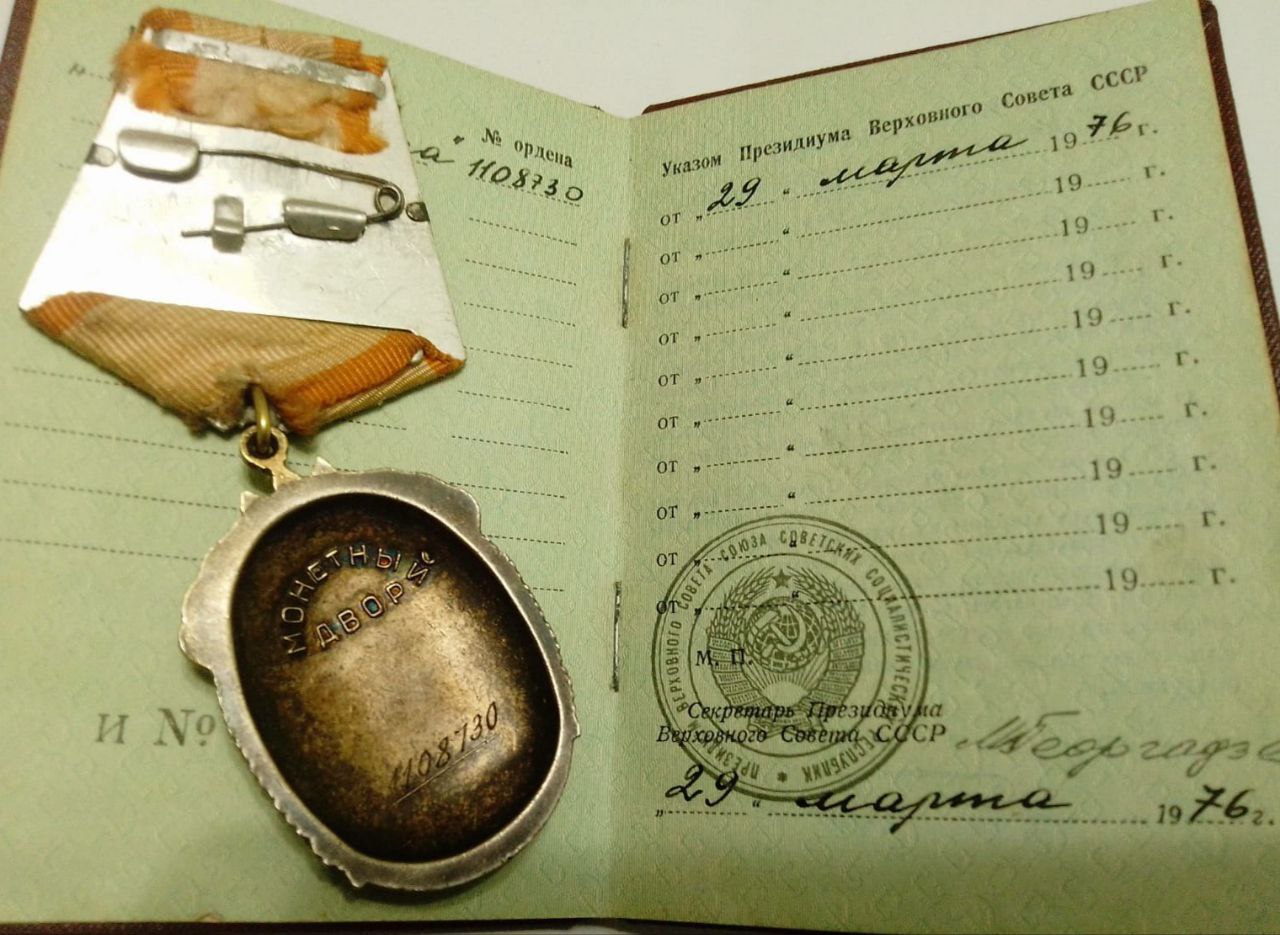 " № ордена
а" 1108730
И №
МОНЕТНЫЙ
ДВОР
1108730
Указом Президиума Верховного Совета СССР
от „ 29 " марта 1976 г.
от „ " 19 г.
от „ " 19 г.
от „ " 19 г.
от „ " 19 г.
от „ " 19 г.
от „ " 19 г.
от „ " 19 г.
от „ " 19 г.
от „ " 19 г.
ПРЕЗИДИУМ ВЕРХОВНОГО СОВЕТА СОЮЗА СОВЕТСКИХ СОЦИАЛИСТИЧЕСКИХ РЕСПУБЛИК *
М. П.
Секретарь Президиума
Верховного Совета СССР МГеоргадзе
„ 29 " марта 1976 г.